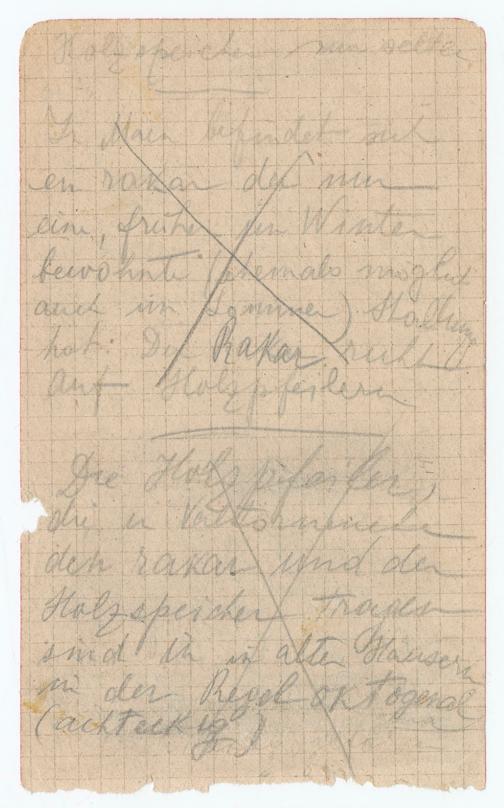 Holzspeicher nur selten
In Main befindet sich
ein rakar der nur
eine, früher im Winter
bewohnte (ehemals möglich
auch im Sommer) Stallung
hat. Der Rakar ruht
auf Holzpfeilern
Die Holzpfeiler,
die in
den rakar und den
Holzspeicher tragen
sind in alten Häusern
in der Regel oktogonal
(achteckig)